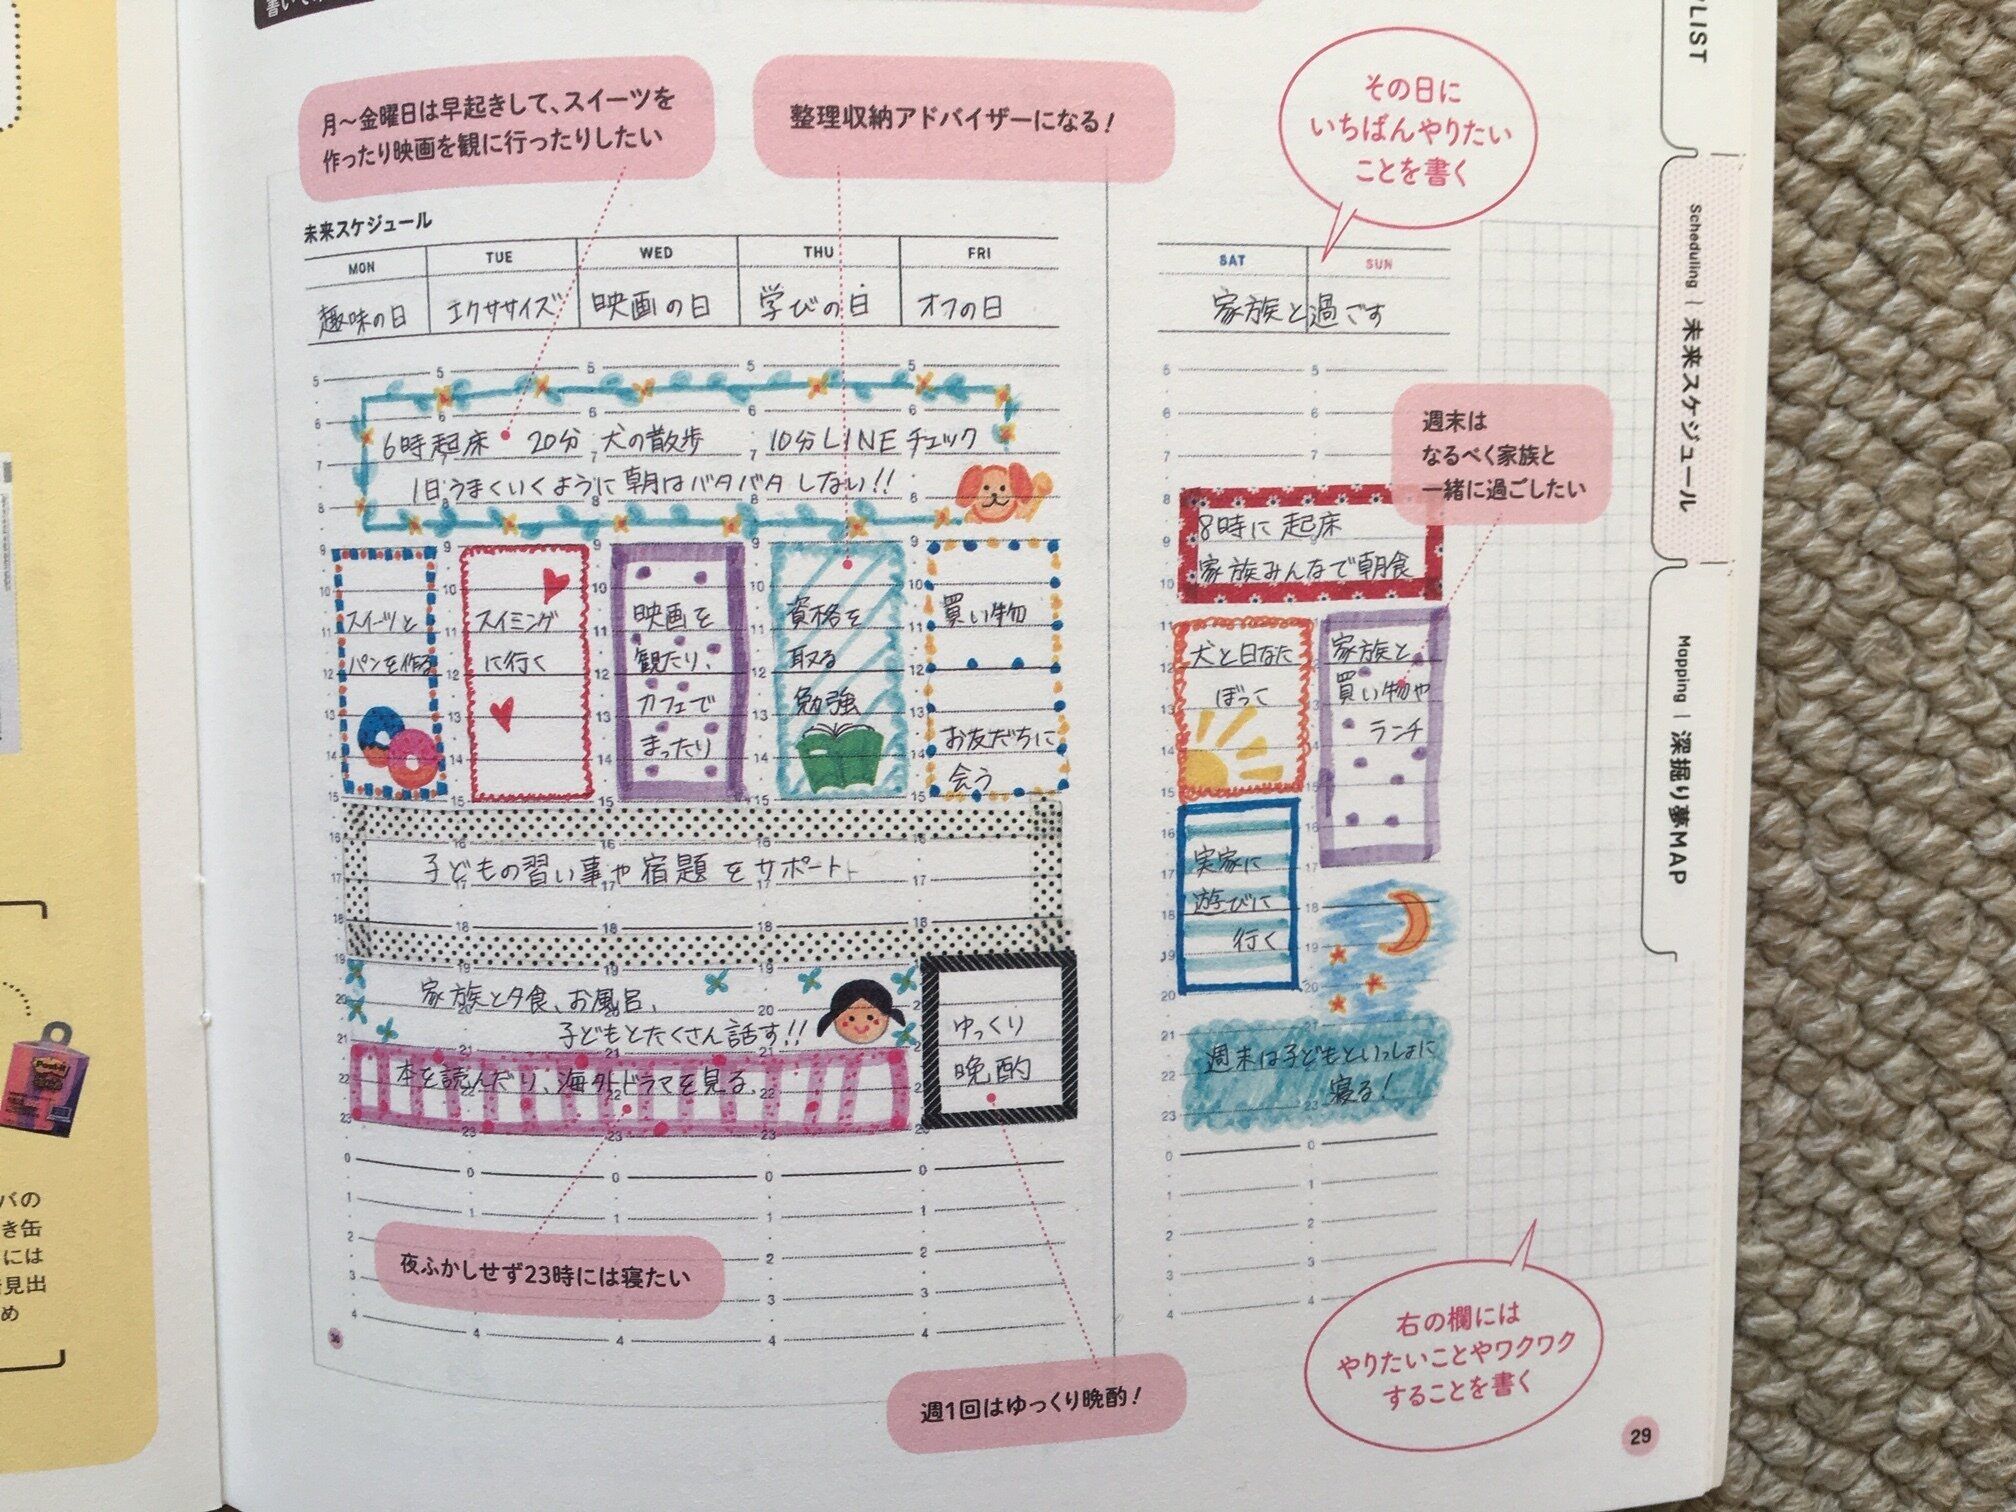 月〜金曜日は早起きして、スイーツを
作ったり映画を観に行ったりしたい
整理収納アドバイザーになる！
その日に
いちばんやりたい
ことを書く
未来スケジュール
MON TUE WED THU FRI SAT SUN
趣味の日 エクササイズ 映画の日 学びの日 オフの日 家族と過ごす
6時起床 20分 犬の散歩 10分LINEチェック
1日うまくいくように朝はバタバタしない!!
週末は
なるべく家族と
一緒に過ごしたい
8時に起床
家族みんなで朝食
スイーツと
パンを作る
スイミング
に行く
映画を
観たり、
カフェで
まったり
資格を
取る
勉強
買い物
お友だちに
会う
犬と日なた
ぼっこ
家族と
買い物や
ランチ
子どもの習い事や宿題をサポート
実家に
遊びに
行く
家族と夕食、お風呂、
子どもとたくさん話す!!
ゆっくり
晩酌
本を読んだり、海外ドラマを見る
週末は子どもといっしょに
寝る！
夜ふかしせず23時には寝たい
週1回はゆっくり晩酌！
右の欄には
やりたいことやワクワク
することを書く
29
LIST
Scheduling | 未来スケジュール
Mapping | 深掘り夢MAP
Post-it
バの
き缶
には
見出
め